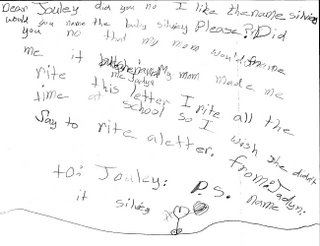 Dear Jouley did you no I like the name silvey
would you name the baby silvey Please? Did
you no that my mom would'n name
me it my mom made me
me Jadyn
rite this letter I rite all the
time at school so I wish she didn't
say to rite a letter. from: Jadyn:
to: Jouley: P.S. name
it silvey